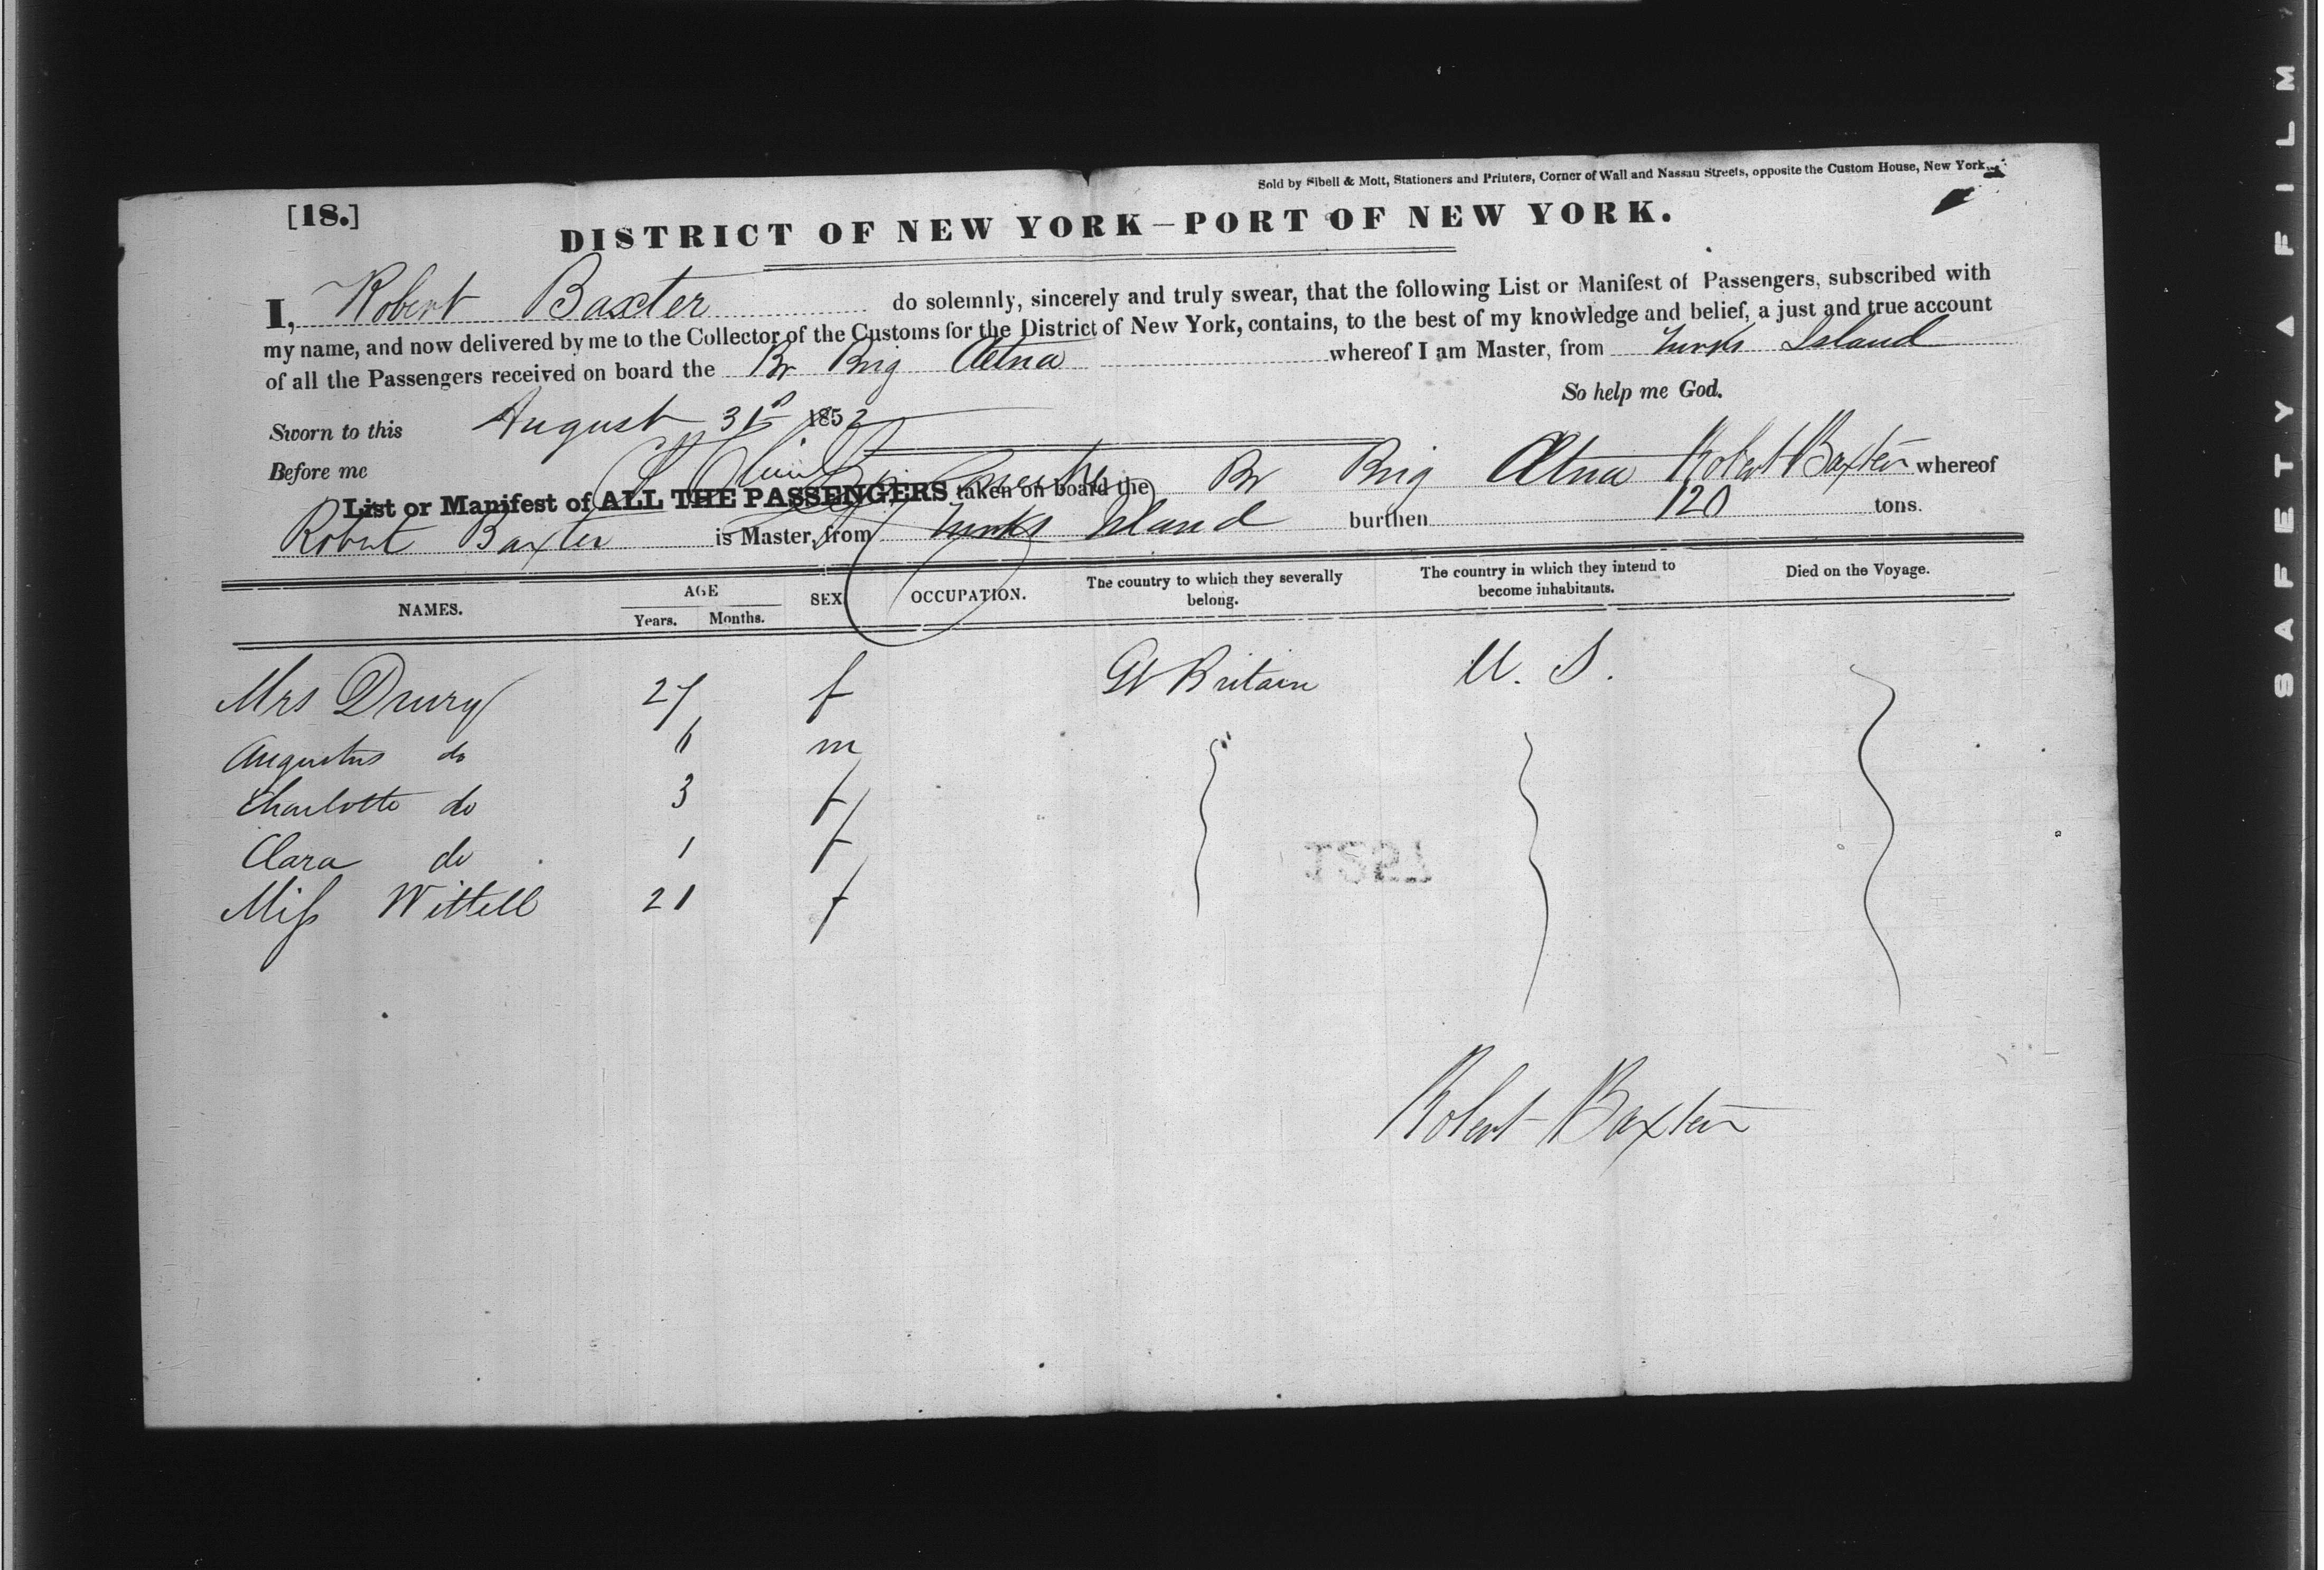 Sold by Sibell & Mott, Stationers and Printers, Corner of Wall and Nassau Streets, opposite the Custom House, New York.
[18.]
DISTRICT OF NEW YORK—PORT OF NEW YORK.
I, Robert Baxter do solemnly, sincerely and truly swear, that the following List or Manifest of Passengers, subscribed with
my name, and now delivered by me to the Collector of the Customs for the District of New York, contains, to the best of my knowledge and belief, a just and true account
of all the Passengers received on board the Br Brig Aetna whereof I am Master, from Turks Island
So help me God.
Sworn to this August 31st 1852
Before me
Robert Baxter
List or Manifest of ALL THE PASSENGERS taken on board the Br Brig Ætna whereof
Robert Baxter is Master, from Turks Island burthen 120 tons.
NAMES. AGE Years. Months. SEX OCCUPATION. The country to which they severally belong. The country in which they intend to become inhabitants. Died on the Voyage.
Mrs Drury 27 f Gt Britain U. S.
Augustus do 6 m
Charlotte do 3 f
Clara do 1 f
Miss Wittell 21 f
Robert Baxter
SAFETY A FILM